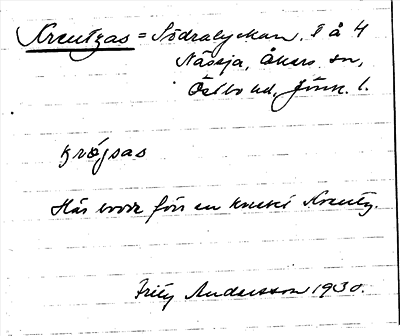 Kreutzas = Södralyckan, I å 4
Nässja, Åkers sn,
Östbo hd, Jönk. l.
krøjsas
Här bodde förr en knekt Kreutz.
Fritz Andersson 1930.